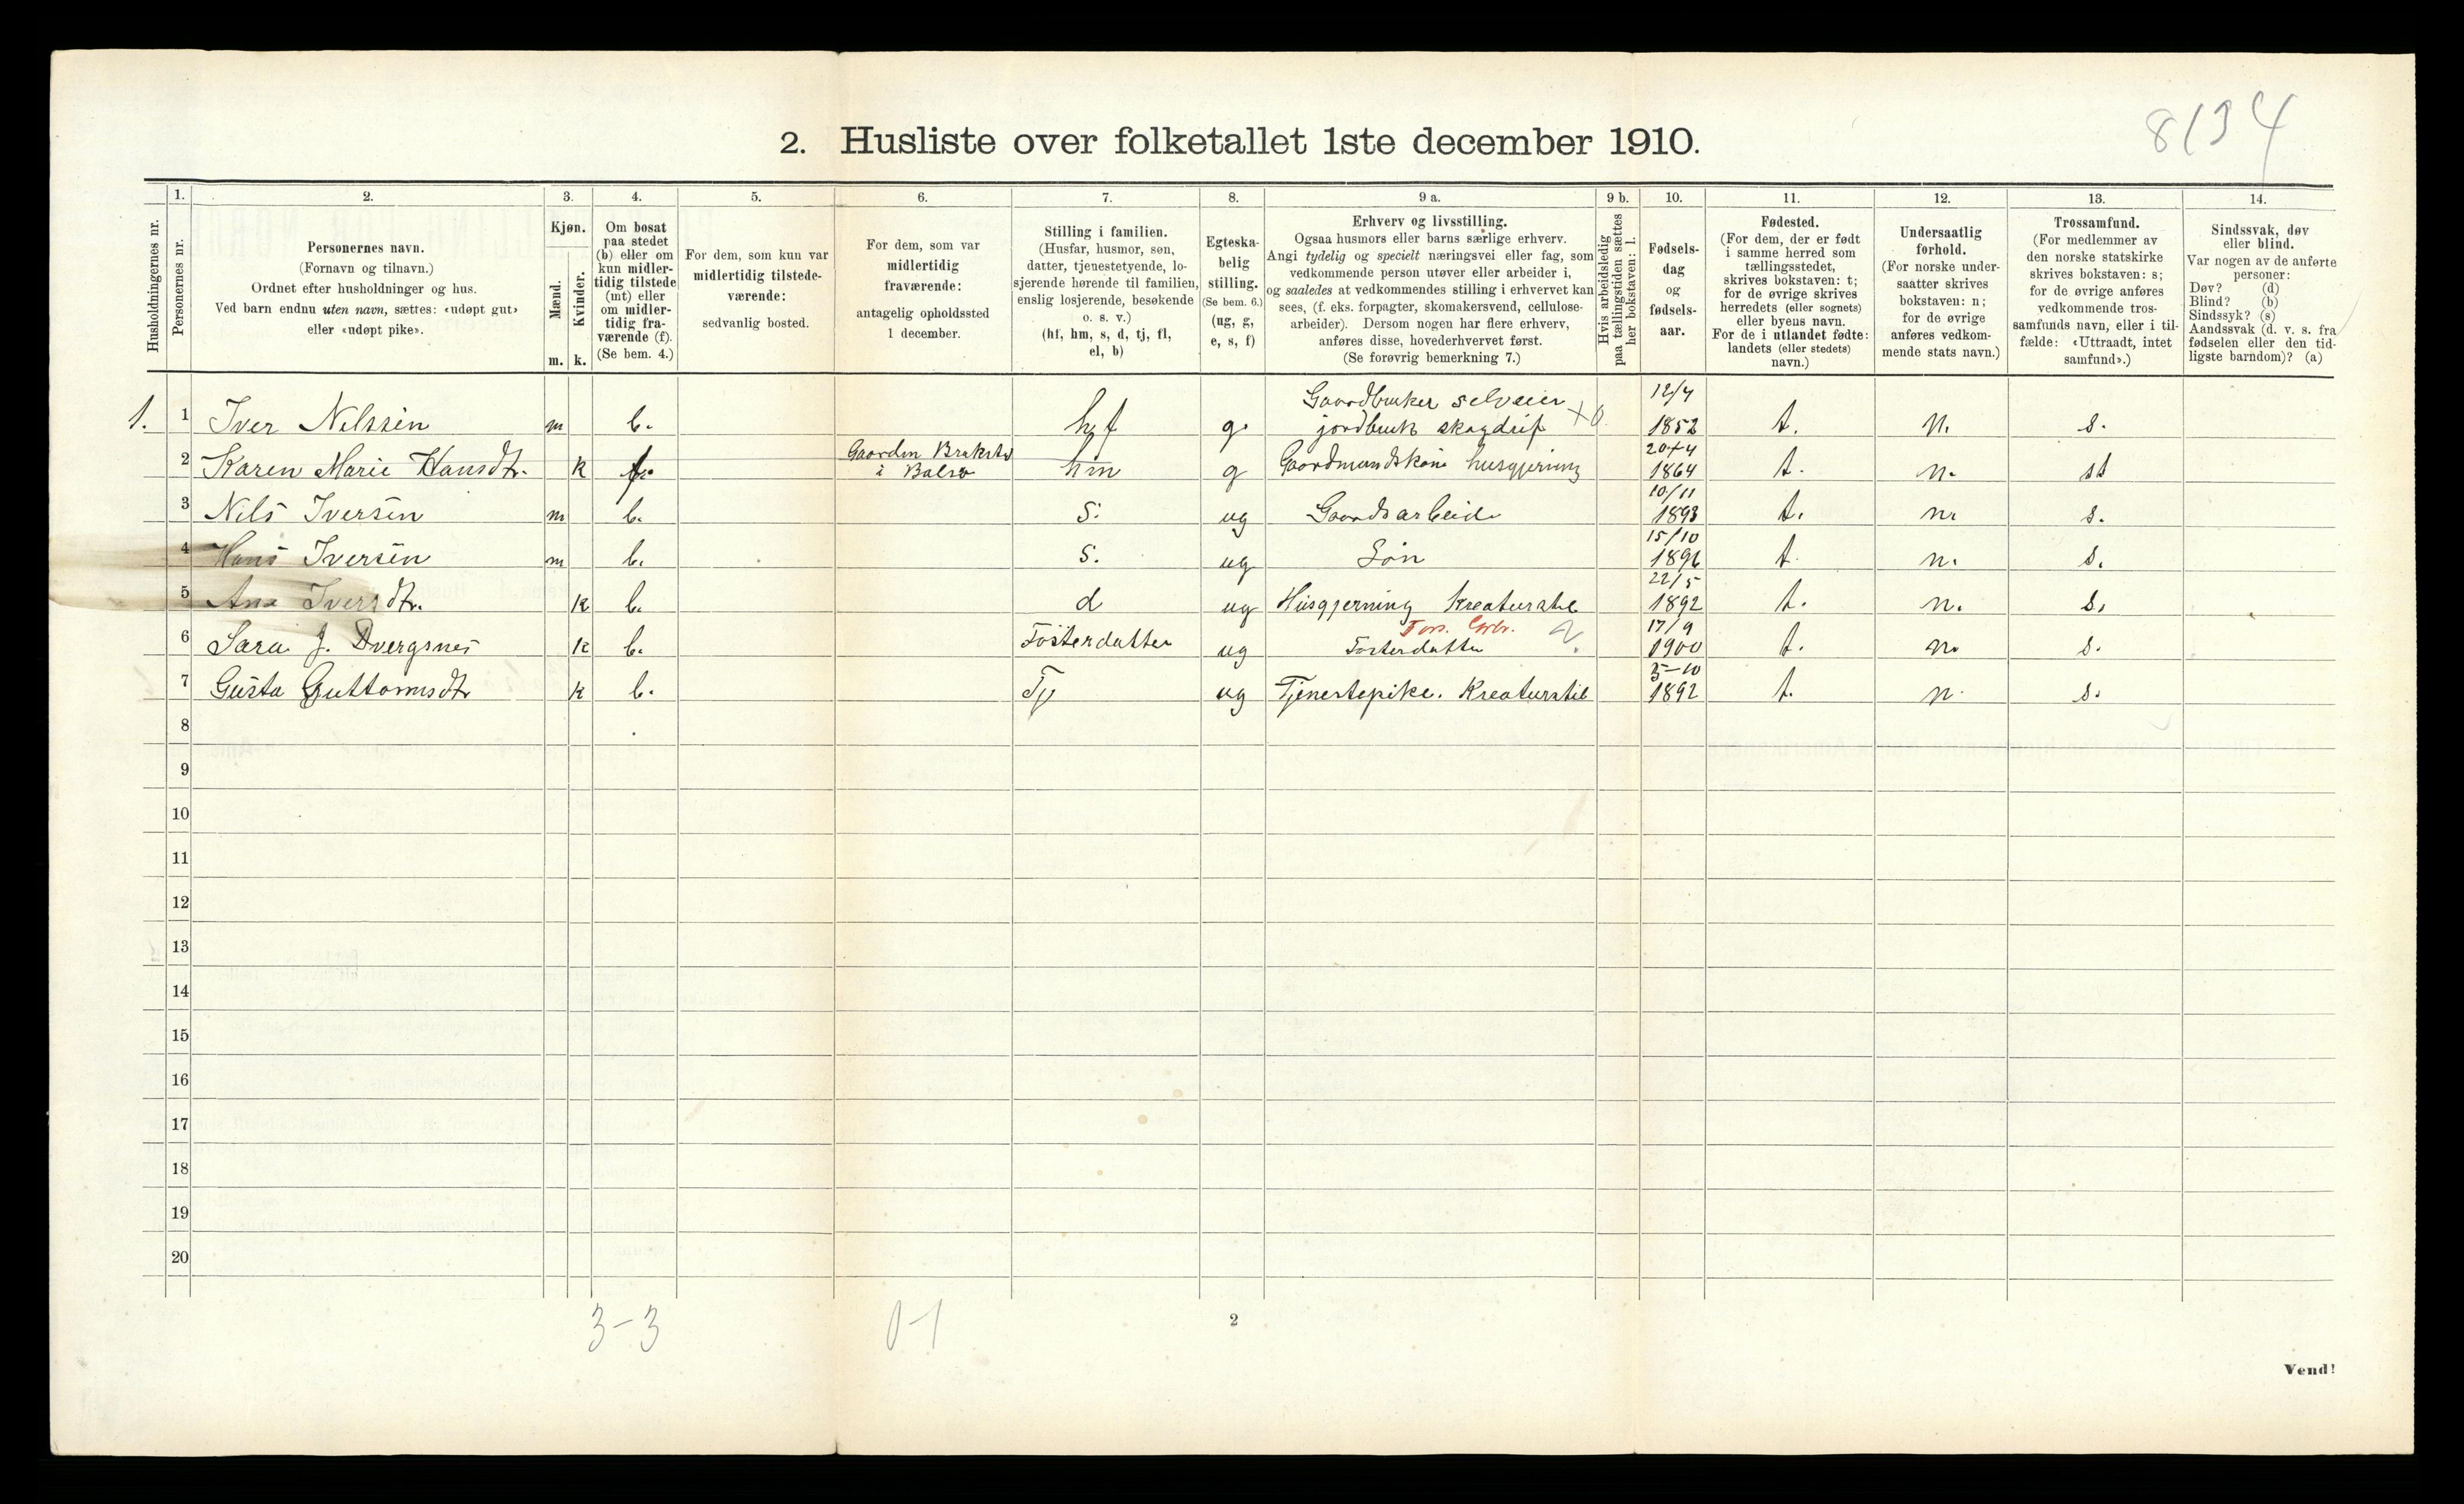 8134
2. Husliste over folketallet 1ste december 1910.
Husholdningernes nr.
1.
Personernes nr.
2.
Personernes navn.
(Fornavn og tilnavn.)
Ordnet efter husholdninger og hus.
Ved barn endnu uten navn, sættes: «udøpt gut»
eller «udøpt pike».
3.
Kjøn.
Mænd.
Kvinder.
m. k.
4.
Om bosat
paa stedet
(b) eller om
kun midler-
tidig tilstede
(mt) eller
om midler-
tidig fra-
værende (f).
(Se bem. 4.)
5.
For dem, som kun var
midlertidig tilstede-
værende:
sedvanlig bosted.
6.
For dem, som var
midlertidig
fraværende:
antagelig opholdssted
1 december.
7.
Stilling i familien.
(Husfar, husmor, søn,
datter, tjenestetyende, lo-
sjerende hørende til familien,
enslig losjerende, besøkende
o. s. v.)
(hf, hm, s, d, tj, fl,
el, b)
8.
Egteska-
belig
stilling.
(Se bem. 6.)
(ug, g,
e, s, f)
9 a.
Erhverv og livsstilling.
Ogsaa husmors eller barns særlige erhverv.
Angi tydelig og specielt næringsvei eller fag, som
vedkommende person utøver eller arbeider i,
og saaledes at vedkommendes stilling i erhvervet kan
sees, (f. eks. forpagter, skomakersvend, cellulose-
arbeider). Dersom nogen har flere erhverv,
anføres disse, hovederhvervet først.
(Se forøvrig bemerkning 7.)
9 b.
Hvis arbeidsledig
paa tællingstiden sættes
her bokstaven: l.
10.
Fødsels-
dag
og
fødsels-
aar.
11.
Fødested.
(For dem, der er født
i samme herred som
tællingsstedet,
skrives bokstaven: t;
for de øvrige skrives
herredets (eller sognets)
eller byens navn.
For de i utlandet fødte:
landets (eller stedets)
navn.)
12.
Undersaatlig
forhold.
(For norske under-
saatter skrives
bokstaven: n;
for de øvrige
anføres vedkom-
mende stats navn.)
13.
Trossamfund.
(For medlemmer av
den norske statskirke
skrives bokstaven: s;
for de øvrige anføres
vedkommende tros-
samfunds navn, eller i til-
fælde: «Uttraadt, intet
samfund».)
14.
Sindssvak, døv
eller blind.
Var nogen av de anførte
personer:
Døv? (d)
Blind? (b)
Sindssyk? (s)
Aandssvak (d. v. s. fra
fødselen eller den tid-
ligste barndom)? (a)
1. 1 Iver Nilssen m b. hf g. Gaardbruker selveier jordbruk skogdrif 12/4 1852 t. n. s.
2 Karen Marie Hansdtr. k f. Gaarden i Balsø hm g Gaardmandskone husgjerning 20/4 1864 t. n. st
3 Nils Iversen m b. s. ug Gaardsarbeide 10/11 1893 t. n. s.
4 Hans Iversen m b. s. ug Søn 15/10 1896 t. n. s.
5 Ane Iversdtr. k b. d ug Husgjerning Kreaturstel 22/5 1892 t. n. s.
6 Sara J. Dvergsnes k b. Fosterdatter ug Fosterdatter 17/9 1900 t. n. s.
7 Gusta Guttormsdtr k b. Tj ug Tjenestepike. Kreaturstel 5-10 1892 t. n. s.
8
9
10
11
12
13
14
15
16
17
18
19
20
3-3
0-1
2
Vend!